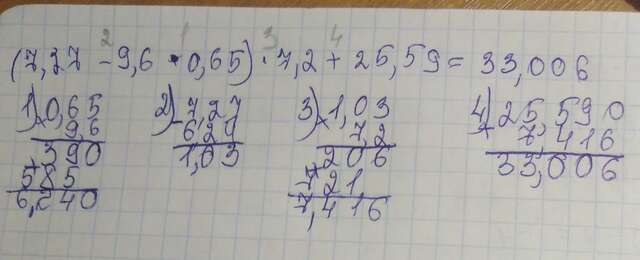 2 1 3 4
(7,27 - 9,6 · 0,65) · 7,2 + 25,59 = 33,006
1) 0,65 2) - 7,27 3) × 1,03 4) + 25,590
9,6 6,24 7,2 7,416
+ 390 1,03 + 206 33,006
585 721
6,240 7,416